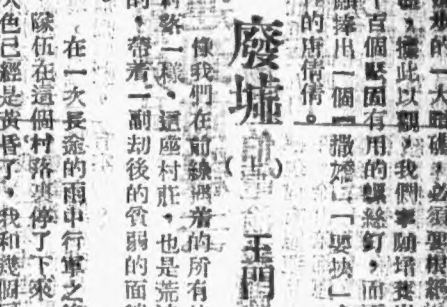 的一大暗礁，必須要根絕
，據此以觀，我們寧願培養
千百個堅固有用的螺絲釘，而
願捧出一個「撒嬌」「要挾」
的唐倩倩。
廢墟
王門
像我們在前線遇着的所有
村落一樣，這座村莊，也是荒
的，帶着一副劫後的貧弱的面
在一次長途的雨中行軍之
隊伍在這個村落裏停了下來
色已經是黃昏了，我和幾個